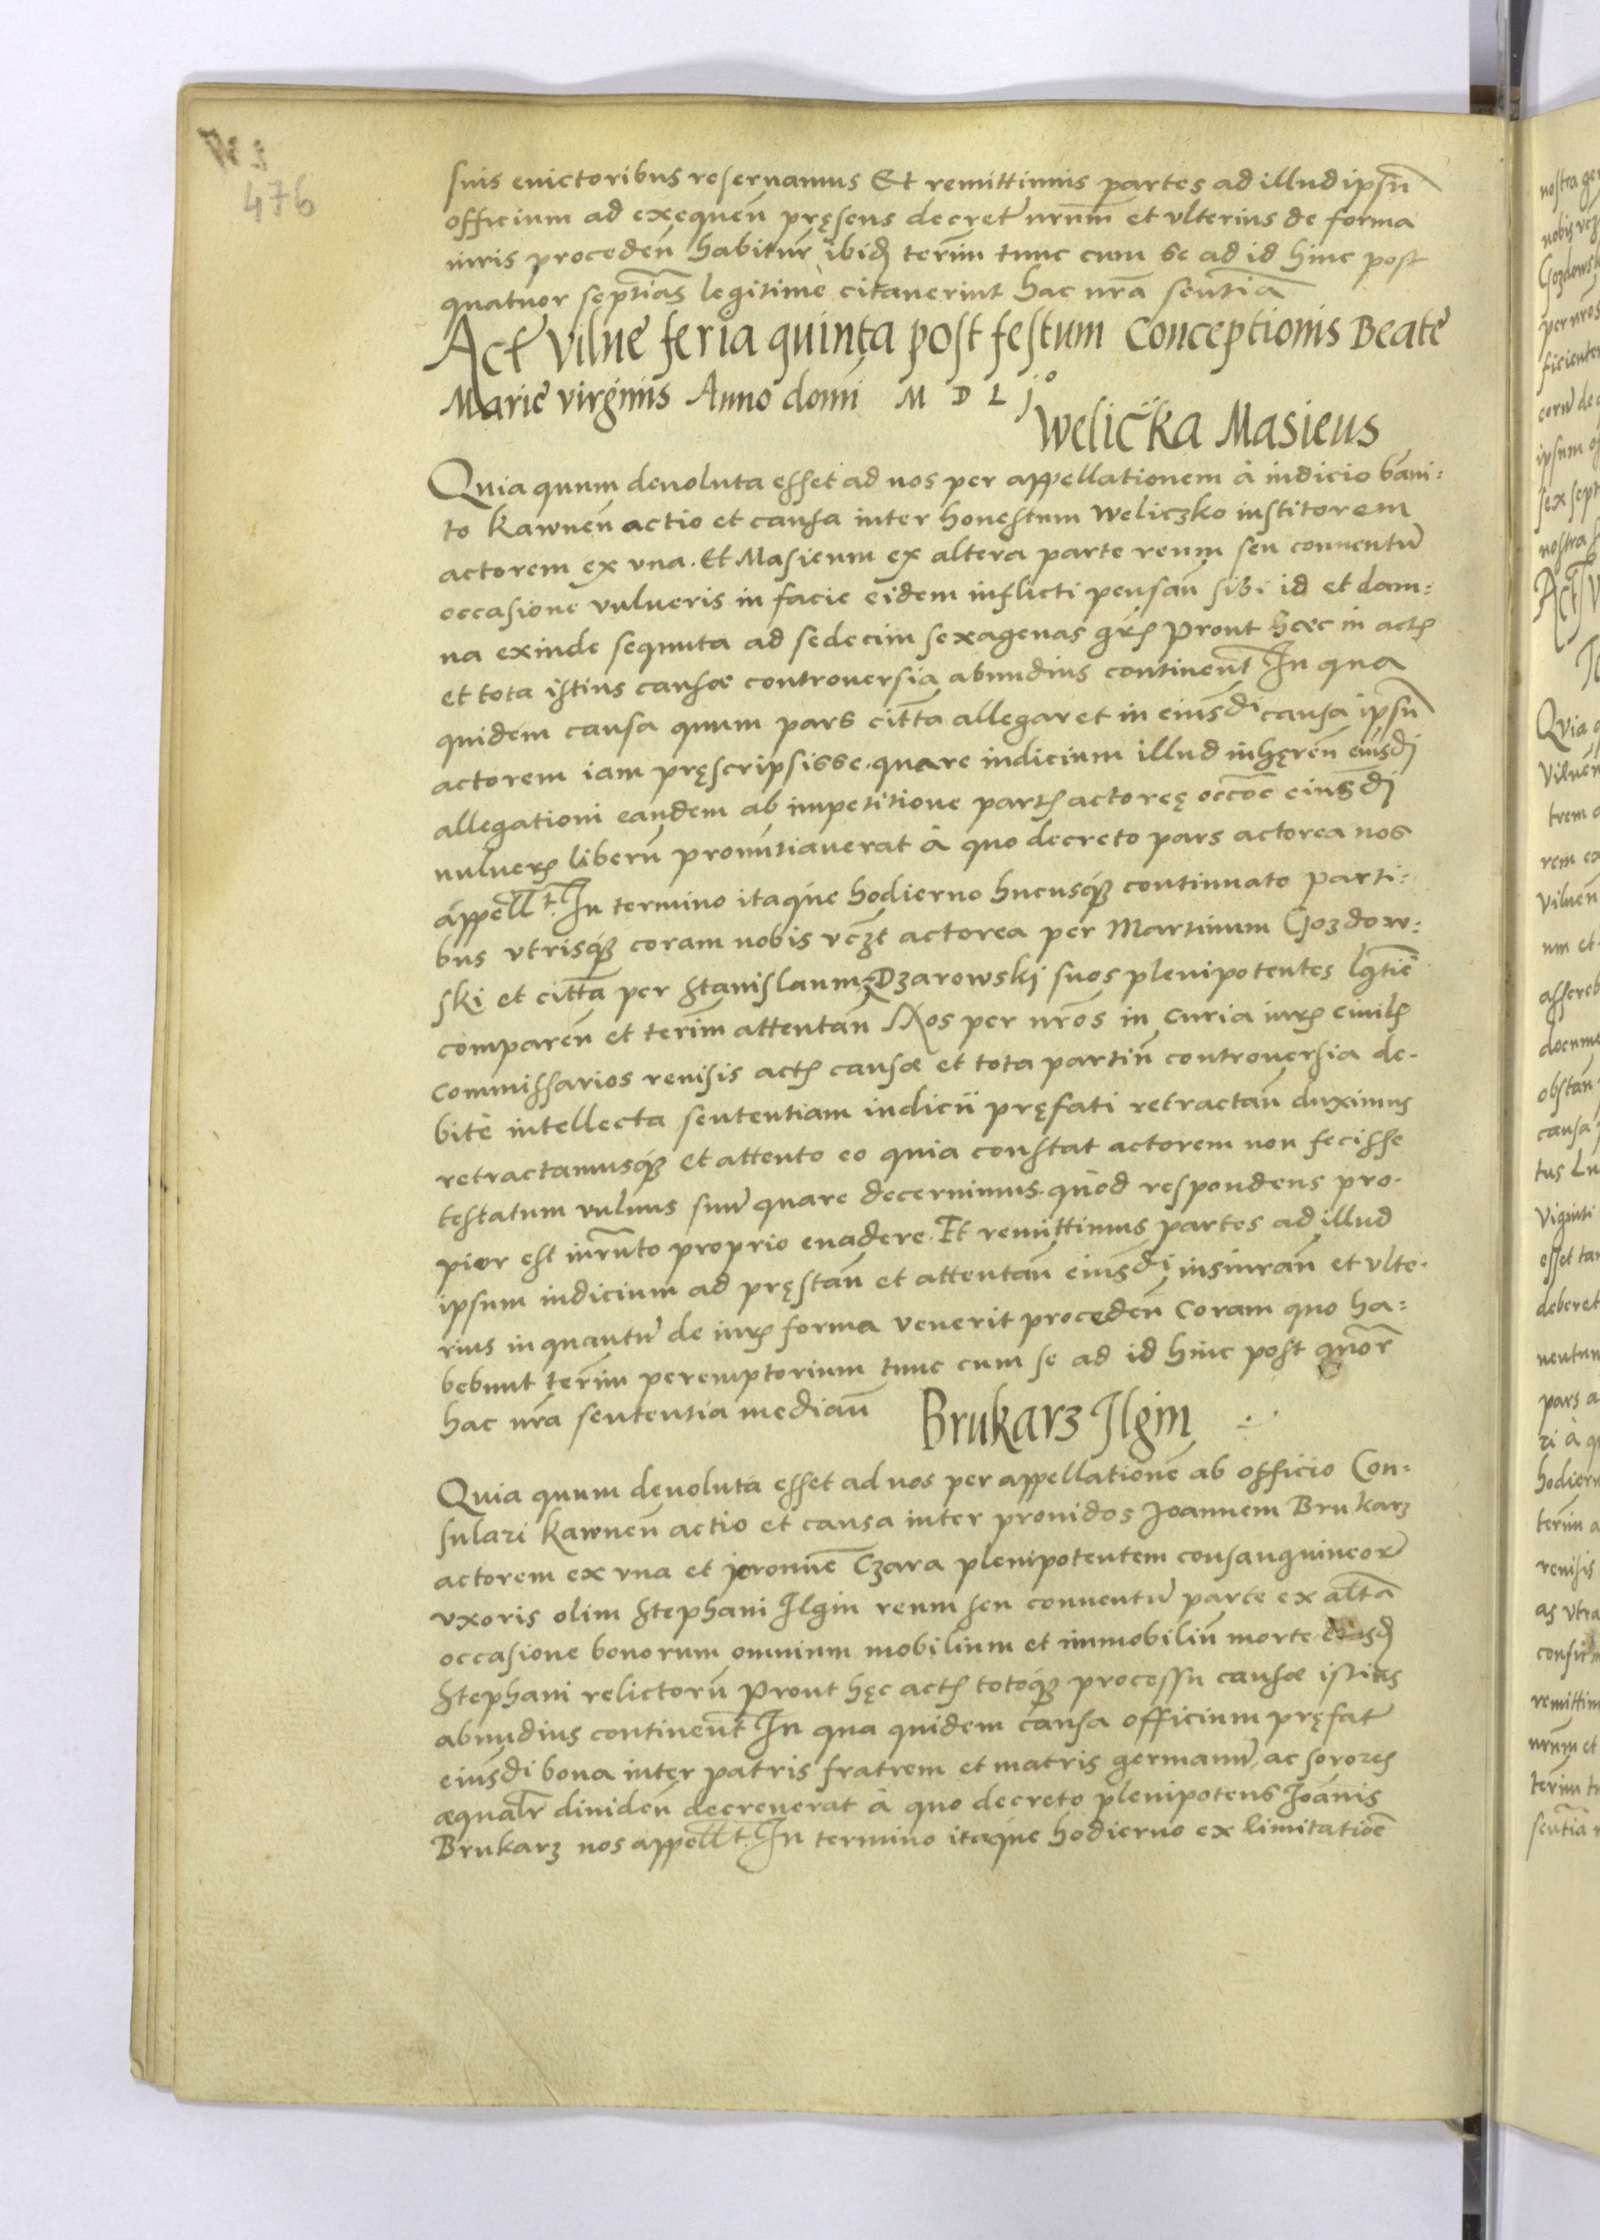 476
suis euictoribus reseruamus Et remittimus partes ad illud ipsū
officium ad exequeñ pręsens decret nrūm et vlterius de forma
iuris procedeñ habitur ibid terīm tunc cum se ad id hinc post
quatuor septīas legitimè citauerint hac nrā senttīa
Act Vilnę feria quinta post festum Conceptionis Beatę
Marię virginis Anno domi M D L jº
Weliċka Masieus
Quia quum deuoluta esset ad nos per appellationem à iudicio bāni-
to Kawneñ actio et causa inter honestum Weliczko institorem
actorem ex vna. Et Masieum ex altera parte reum seu conuentū
occasione vulneris in facie eidem inflicti pensañ sibi id et dam-
na exinde sequuta ad sedecim sexagenas gr Prout hæc in act
et tota istius causæ controuersia abundius continent In qua
quidem causa quum pars citta allegaret in eiusdi causa ipsū
actorem iam pręscripsisse. quare iudicium illud inhęreñ eiusdi
allegationi eandem ab impetitione part actoreę occōe eiusdi
vulner liberū pronūtiauerat à quo decreto pars actorea nos
appellt. In termino itaque hodierno hucusq continuato parti-
bus vtrisq coram nobis vczt actorea per Martinum Gozdow-
ski et citta per Stanislaum Dzarowski suos plenipotentes lgtīe
compareñ et terīm attentañ Nos per nrōs in curia iur ciuil
commissarios reuisis act causæ et tota partiū controuersia de-
bitè intellecta sententiam iudicii pręfati retractañ duximus
retractamusq et attento eo quia constat actorem non fecisse
testatum vulnus suū quare decernimus. quod respondens pro-
pior est iurnto proprio euadere. Et remittimus partes ad illud
ipsum iudicium ad pręstañ et attentañ eiusdi insiurañ et vlte-
rius in quantū de iur forma venerit procedeñ coram quo ha-
bebunt terīm peremptorium tunc cum se ad id hinc post quor
hac nrā sententia mediañ
Brukarz Ilgin
Quia quum deuoluta esset ad nos per appellationē ab officio Con-
sulari Kawneñ actio et causa inter prouidos Joannem Brukarz
actorem ex vna et jeronimē Czara plenipotentem consanguineor
vxoris olim Stephani Ilgin reum seu conuentū parte ex altā
occasione bonorum omnium mobilium et immobiliū morte eiusd
Stephani relictorū Prout hęc act totoq processu causæ istius
abundius continent In qua quidem causa officium pręfat
eiusdi bona inter patris fratrem et matris germanū, ac sorores
æqualr diuideñ decreuerat à quo decreto plenipotens Joānis
Brukarz nos appellt. In termino itaque hodierno ex limitatiōe